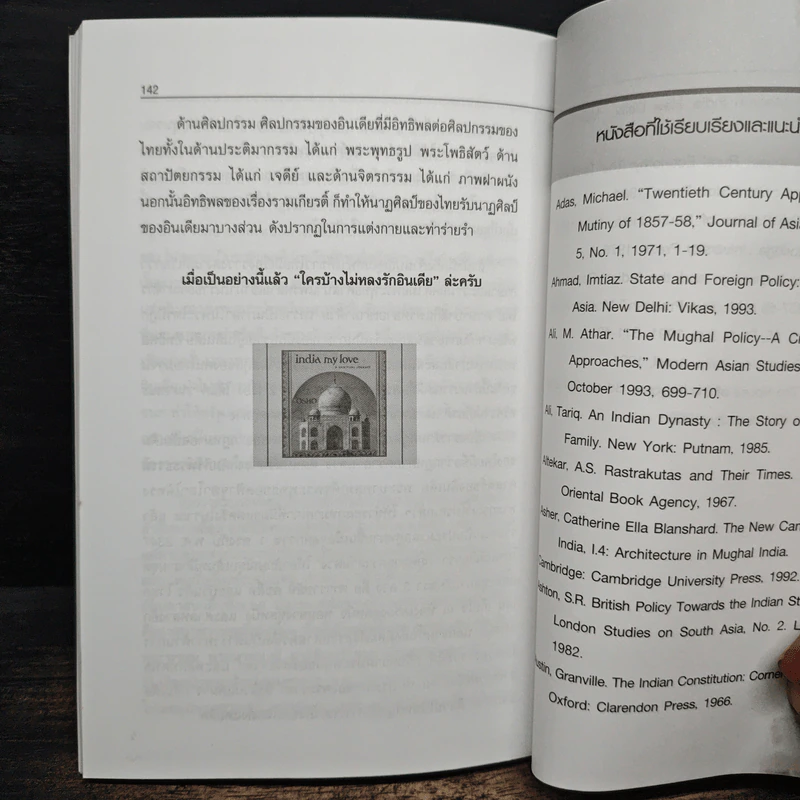 142
ด้านศิลปกรรม ศิลปกรรมของอินเดียที่มีอิทธิพลต่อศิลปกรรมของ
ไทยทั้งในด้านประติมากรรม ได้แก่ พระพุทธรูป พระโพธิสัตว์ ด้าน
สถาปัตยกรรม ได้แก่ เจดีย์ และด้านจิตรกรรม ได้แก่ ภาพฝาผนัง
นอกนั้นอิทธิพลของเรื่องรามเกียรติ์ ก็ทำให้นาฏศิลป์ของไทยรับนาฏศิลป์
ของอินเดียมาบางส่วน ดังปรากฏในการแต่งกายและท่าร่ายรำ
เมื่อเป็นอย่างนี้แล้ว “ใครบ้างไม่หลงรักอินเดีย” ล่ะครับ
india my love
OSHO
หนังสือที่ใช้เรียบเรียงและแนะนำ
Adas, Michael. “Twentieth Century App
Mutiny of 1857-58,” Journal of Asi
5, No. 1, 1971, 1-19.
Ahmad, Imtiaz. State and Foreign Policy:
Asia. New Delhi: Vikas, 1993.
Ali, M. Athar. “The Mughal Policy--A C
Approaches,” Modern Asian Studies
October 1993, 699-710.
Ali, Tariq. An Indian Dynasty : The Story o
Family. New York: Putnam, 1985.
Altekar, A.S. Rastrakutas and Their Times.
Oriental Book Agency, 1967.
Asher, Catherine Ella Blanshard. The New Cam
India, I.4: Architecture in Mughal India.
Cambridge: Cambridge University Press, 1992.
Ashton, S.R. British Policy Towards the Indian St
London Studies on South Asia, No. 2. L
1982.
Austin, Granville. The Indian Constitution: Corner
Oxford: Clarendon Press, 1966.